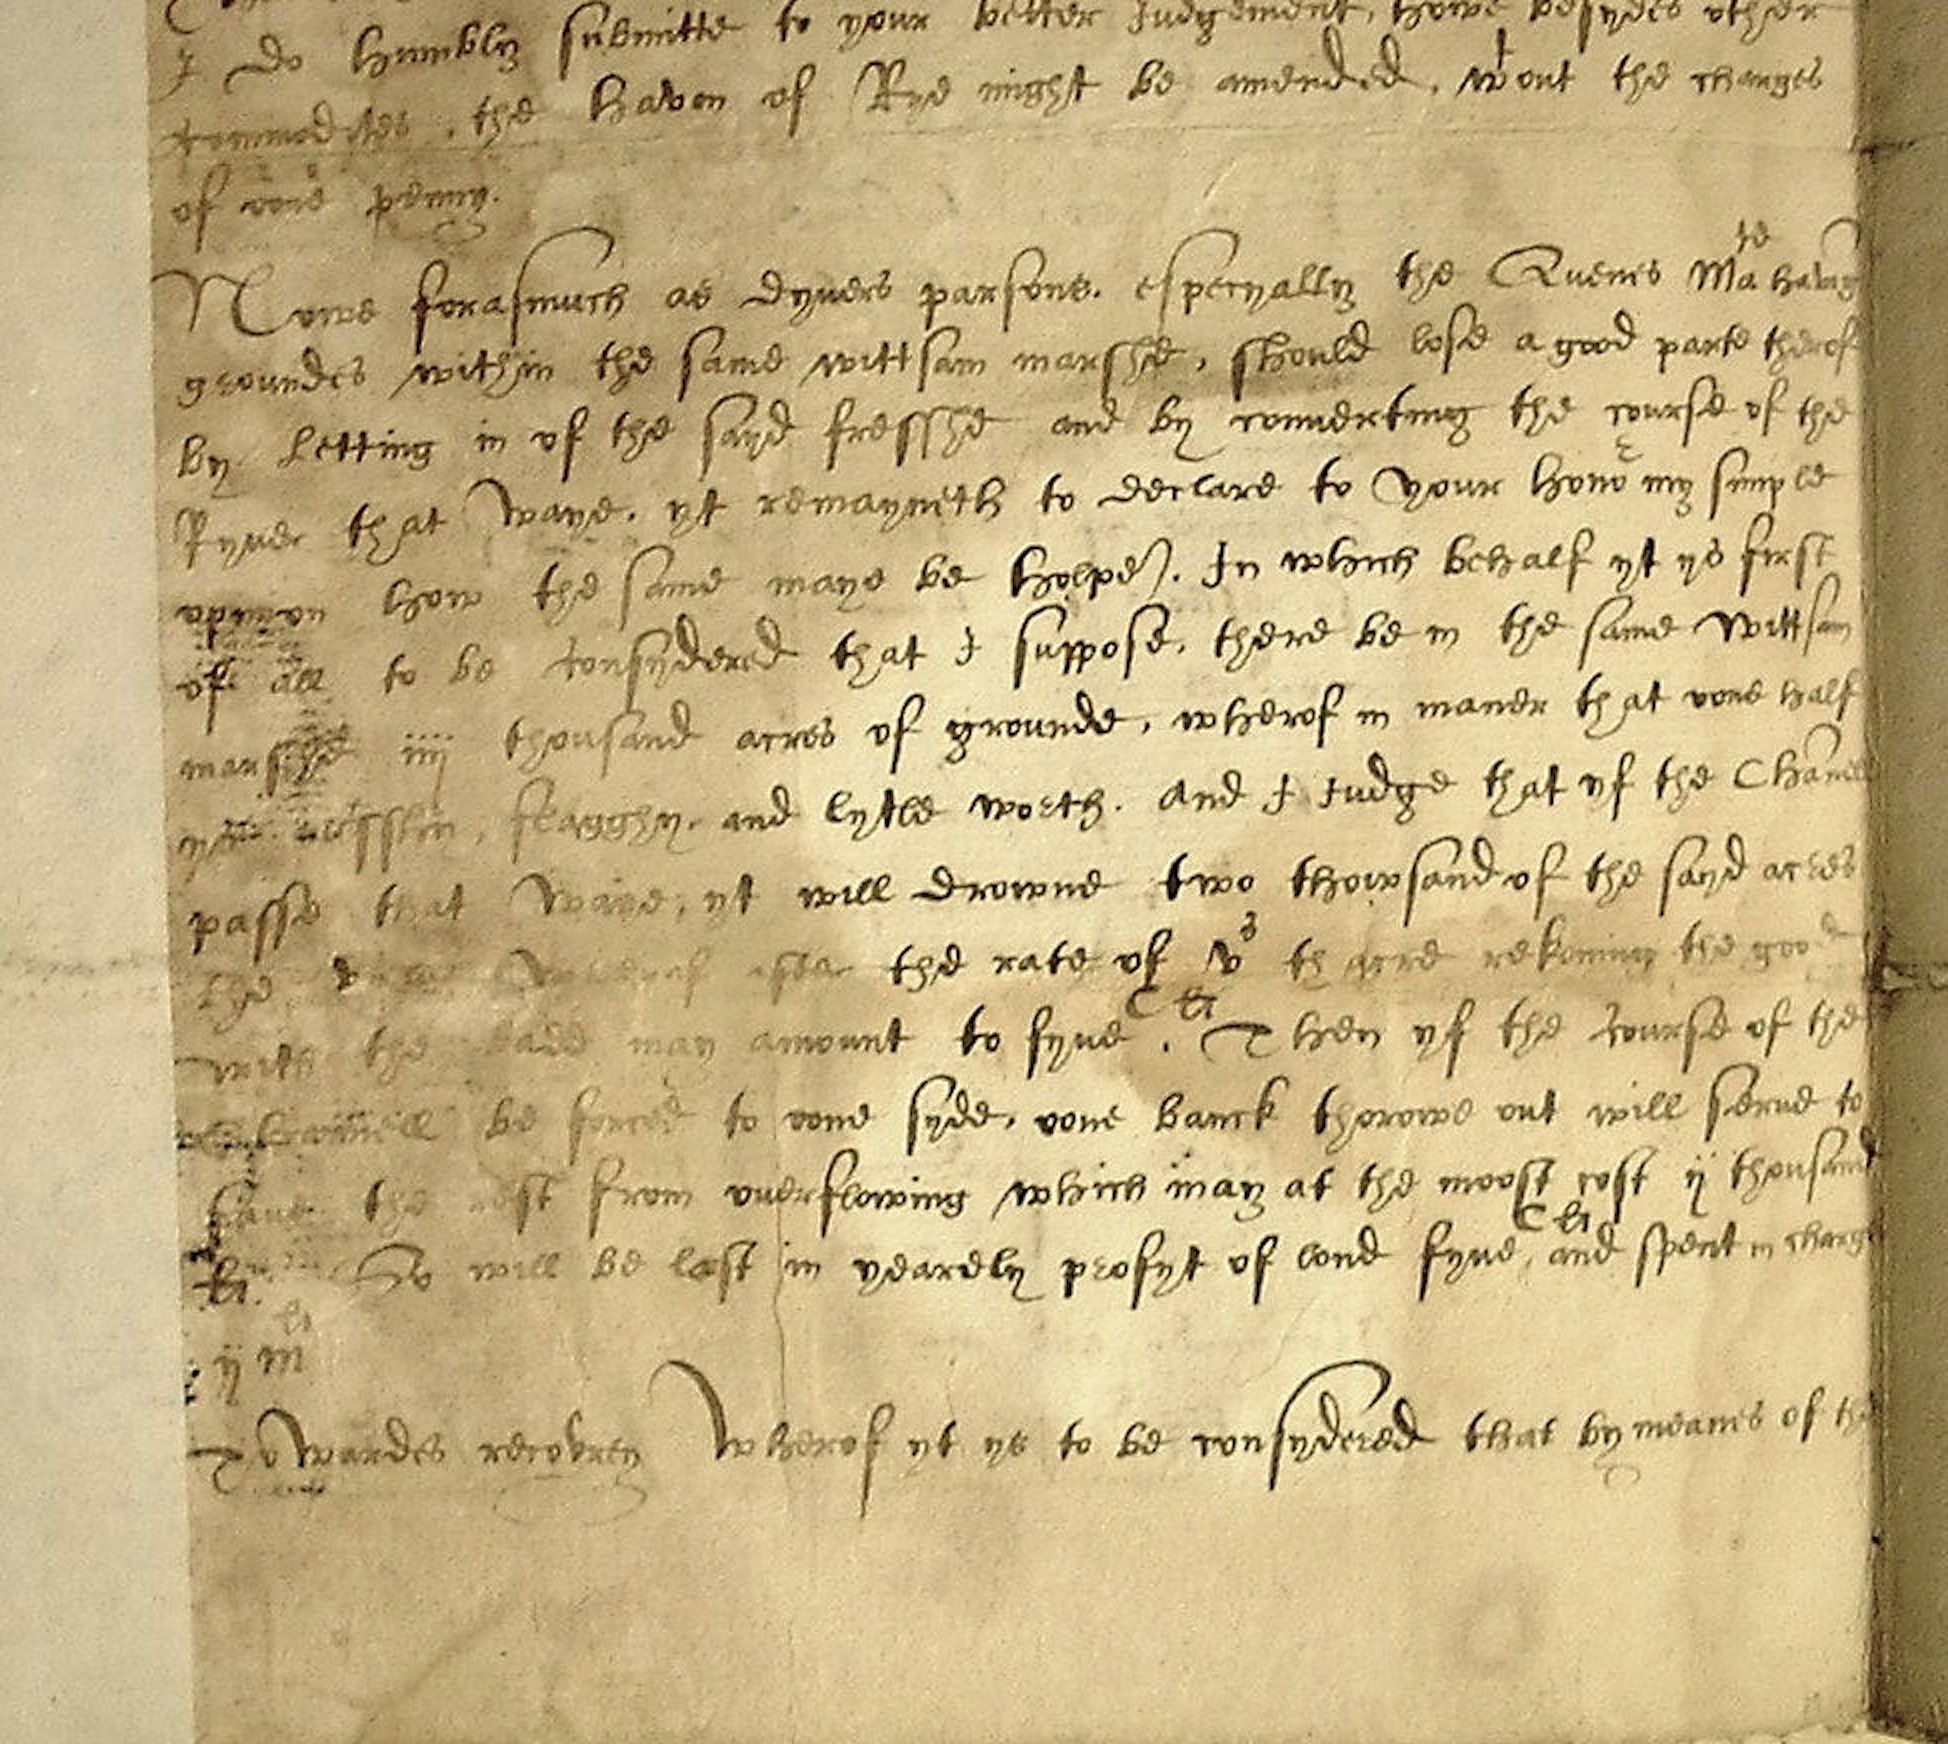 I do humbly submitte to your better Iudgement, howe besydes other
commodites, the haven of Rye might be amended, wt out the charges
of oone penny.
Nowe forasmuch as dyuers parsons. especyally the Quenes Ma tie having
groundes within the same wittsam marshe, should lose a good parte therof
by letting in of the sayd fresshe and by conuerting the course of the
Ryuer that waye. yt remayneth to declare to your honor my simple
opinion how the same maye be holpen. In which behalf yt ys first
of all to be consydered that I suppose, there be in the same wittsam
marshe iiii thousand acres of grounde, wherof in maner that oone half
flagghy. and lytle worth. And I iudge that yf the Chanell
passe that waye, yt will drowne two thowsand of the sayd acres
the wherof after the rate of v s thacre rekoning the good
with the badd may amount to fyue C li. Then yf the course of the
be forced to oone syde, oone banck thorowe out will serue to
saue the rest from ouerflowing which may at the moost cost ij thousand
li. So will be lost in yearely profyt of lond fyue C li, and spent in charge
ij M li
Towardes recovrey wherof yt ys to be consydered that by meanes of the